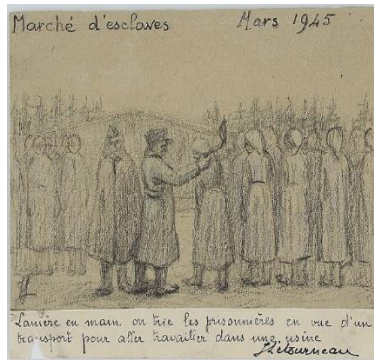 Marché d'esclaves Mars 1945
Lanière en main on trie les prisonnières en vue d'un
transport pour aller travailler dans une usine
J Letourneau